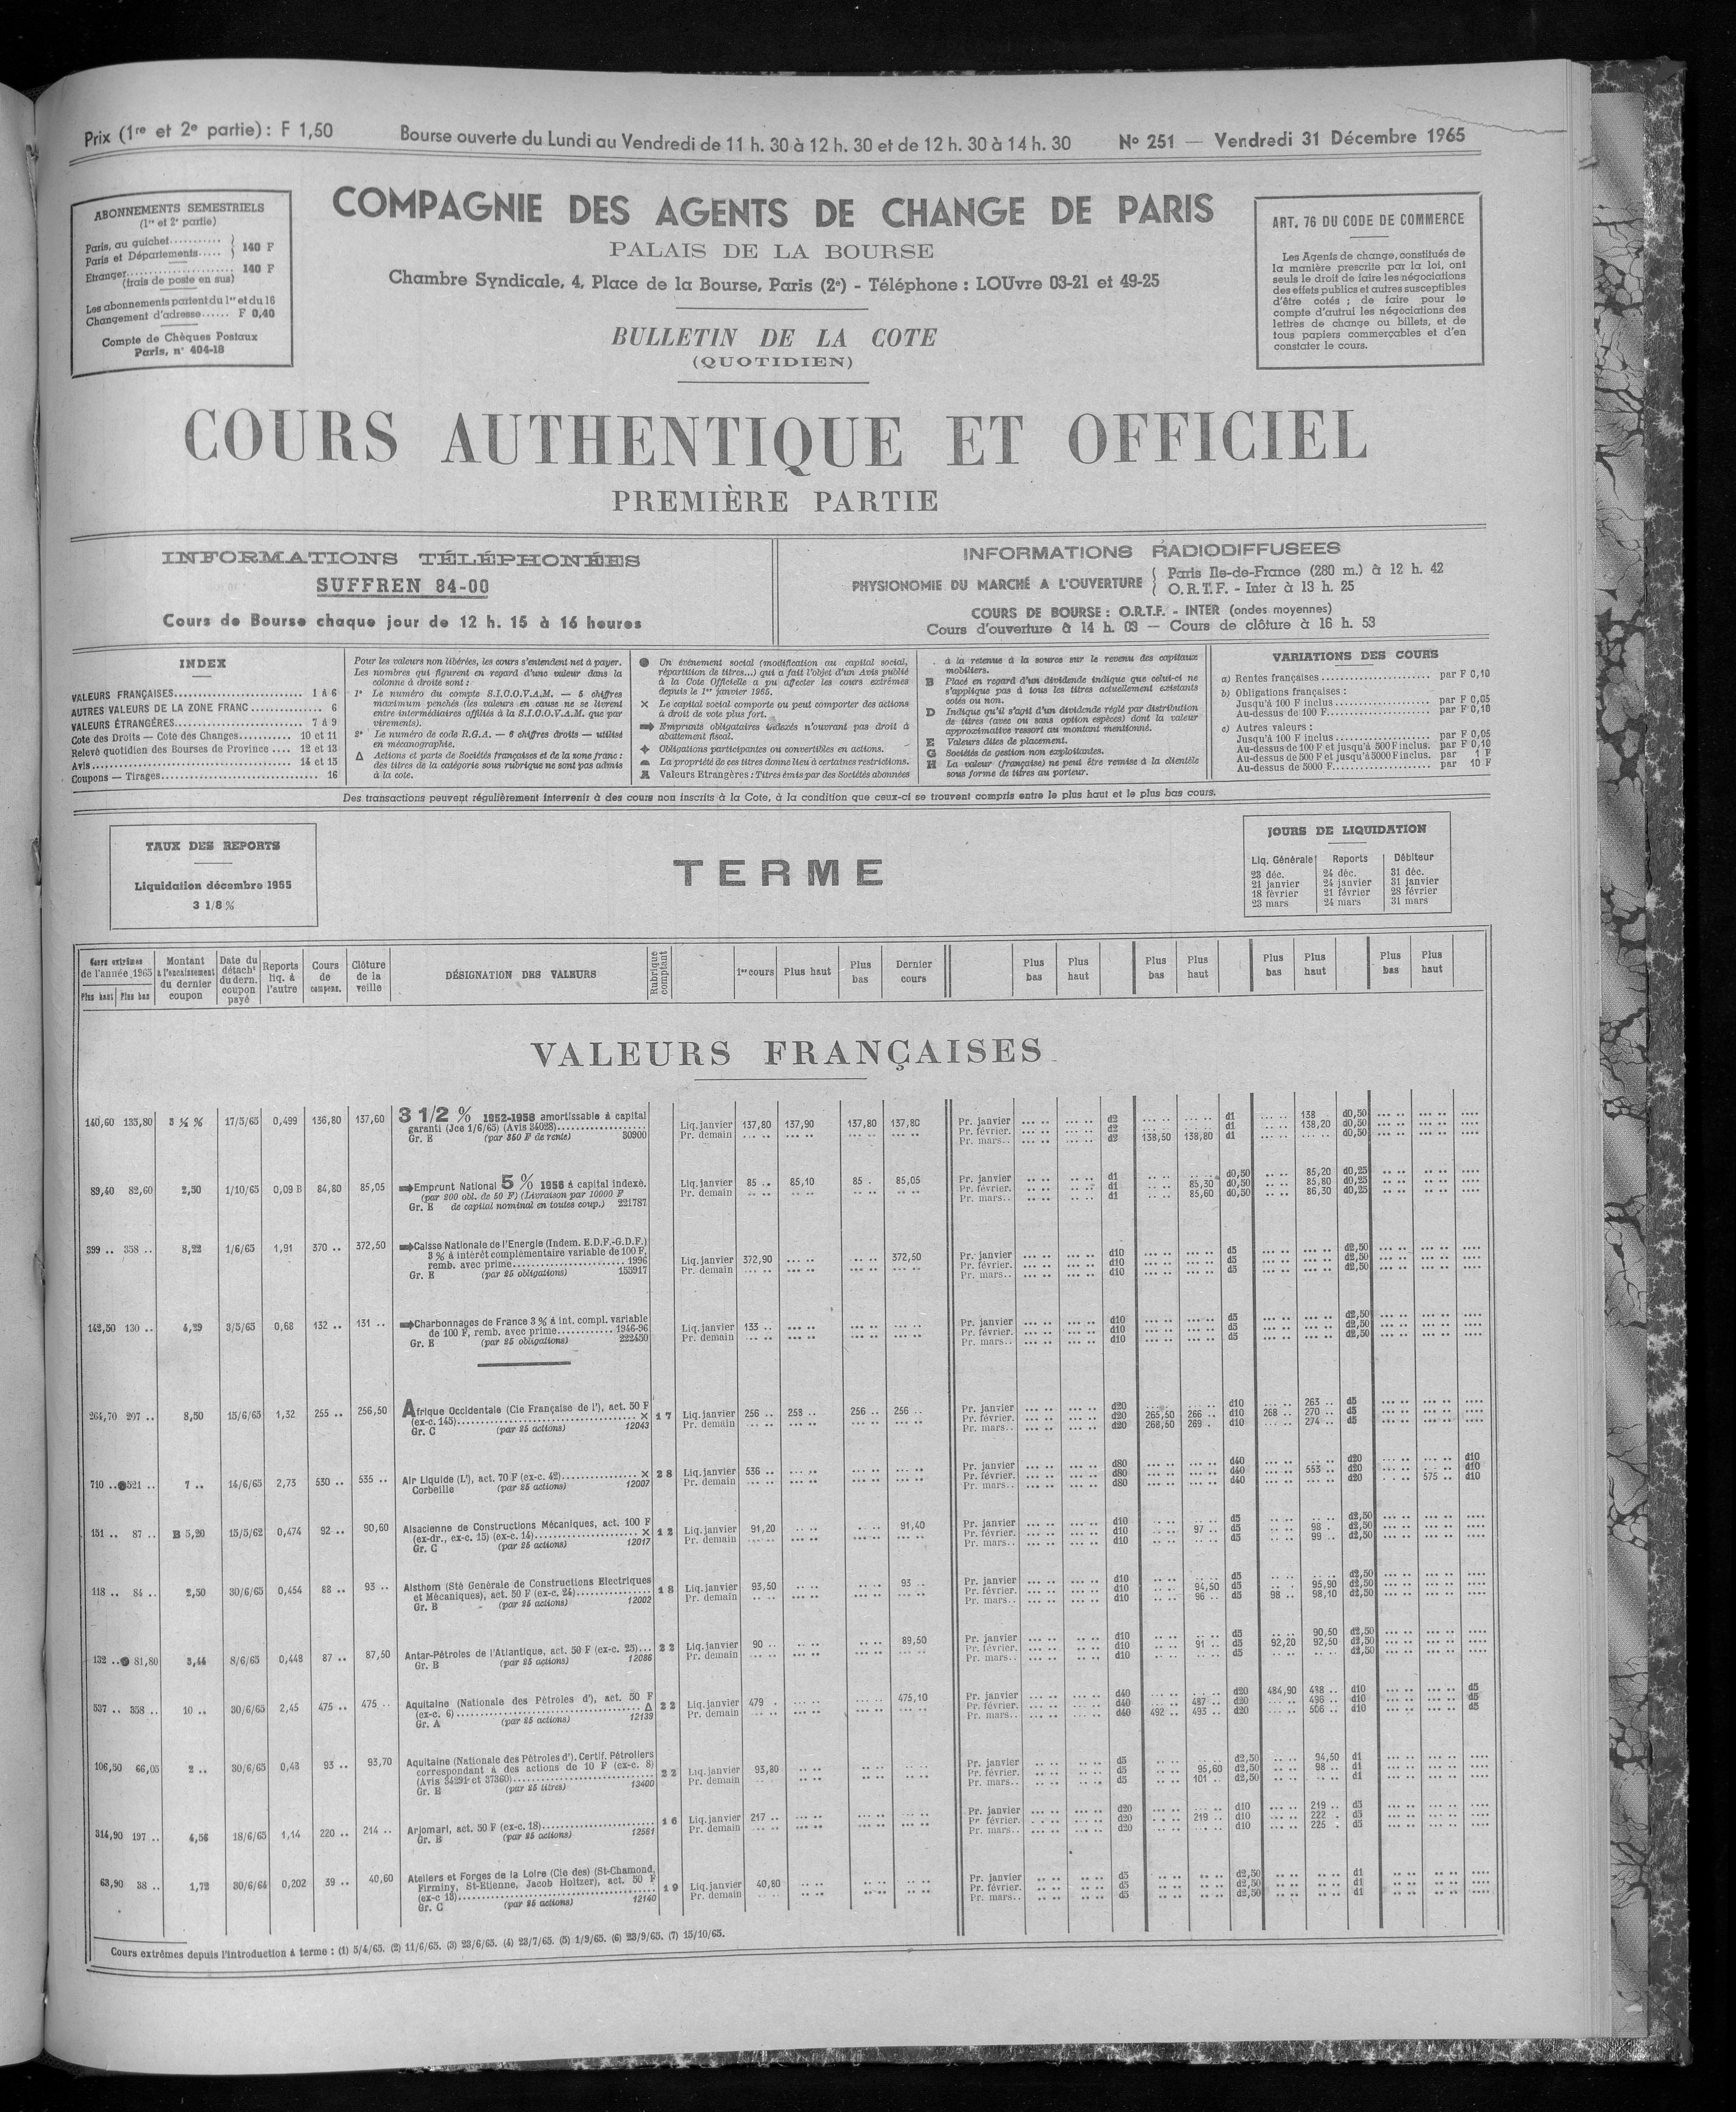 Prix (1re et 2e partie) : F 1,50 Bourse ouverte du Lundi au Vendredi de 11 h. 30 à 12 h. 30 et de 12 h. 30 à 14 h. 30 No 251 — Vendredi 31 Décembre 1965
ABONNEMENTS SEMESTRIELS
(1re et 2e partie)
Paris, au guichet...........
Paris et Départements..... } 140 F
Etranger...................... 140 F
(frais de poste en sus)
Les abonnements partent du 1er et du 16
Changement d'adresse...... F 0,40
Compte de Chèques Postaux
Paris, n° 404-18
COMPAGNIE DES AGENTS DE CHANGE DE PARIS
PALAIS DE LA BOURSE
Chambre Syndicale, 4, Place de la Bourse, Paris (2e) - Téléphone : LOUvre 03-21 et 49-25
BULLETIN DE LA COTE
(QUOTIDIEN)
ART. 76 DU CODE DE COMMERCE
Les Agents de change, constitués de
la manière prescrite par la loi, ont
seuls le droit de faire les négociations
des effets publics et autres susceptibles
d'être cotés ; de faire pour le
compte d'autrui les négociations des
lettres de change ou billets, et de
tous papiers commerçables et d'en
constater le cours.
COURS AUTHENTIQUE ET OFFICIEL
PREMIÈRE PARTIE
INFORMATIONS TÉLÉPHONÉES
SUFFREN 84-00
Cours de Bourse chaque jour de 12 h. 15 à 16 heures
INFORMATIONS RADIODIFFUSEES
PHYSIONOMIE DU MARCHÉ A L'OUVERTURE { Paris Ile-de-France (280 m.) à 12 h. 42
O.R.T.F. - Inter à 13 h. 25
COURS DE BOURSE : O.R.T.F. - INTER (ondes moyennes)
Cours d'ouverture à 14 h. 03 — Cours de clôture à 16 h. 53
INDEX
VALEURS FRANÇAISES.......................... 1 à 6
AUTRES VALEURS DE LA ZONE FRANC .............. 6
VALEURS ÉTRANGÈRES.......................... 7 à 9
Cote des Droits — Cote des Changes........... 10 et 11
Relevé quotidien des Bourses de Province .... 12 et 13
Avis........................................ 14 et 15
Coupons — Tirages................................ 16
Pour les valeurs non libérées, les cours s'entendent net à payer.
Les nombres qui figurent en regard d'une valeur dans la
colonne à droite sont :
1° Le numéro du compte S.I.C.O.V.A.M. — 5 chiffres
maximum penchés (les valeurs en cause ne se livrent
entre intermédiaires affiliés à la S.I.C.O.V.A.M. que par
virements).
2° Le numéro de code R.G.A. — 6 chiffres droits — utilisé
en mécanographie.
Δ Actions et parts de Sociétés françaises et de la zone franc :
des titres de la catégorie sous rubrique ne sont pas admis
à la cote.
● Un événement social (modification au capital social,
répartition de titres...) qui a fait l'objet d'un Avis publié
à la Cote Officielle a pu affecter les cours extrêmes
depuis le 1er janvier 1965.
× Le capital social comporte ou peut comporter des actions
à droit de vote plus fort.
➡ Emprunts obligataires indexés n'ouvrant pas droit à
abattement fiscal.
✦ Obligations participantes ou convertibles en actions.
La propriété de ces titres donne lieu à certaines restrictions.
Valeurs Etrangères : Titres émis par des Sociétés abonnées
à la retenue à la source sur le revenu des capitaux
mobiliers.
B Placé en regard d'un dividende indique que celui-ci ne
s'applique pas à tous les titres actuellement existants
cotés ou non.
D Indique qu'il s'agit d'un dividende réglé par distribution
de titres (avec ou sans option espèces) dont la valeur
approximative ressort au montant mentionné.
E Valeurs dites de placement.
G Sociétés de gestion non exploitantes.
H La valeur (française) ne peut être remise à la clientèle
sous forme de titres au porteur.
VARIATIONS DES COURS
a) Rentes françaises ...................... par F 0,10
b) Obligations françaises :
Jusqu'à 100 F inclus................... par F 0,05
Au-dessus de 100 F..................... par F 0,10
c) Autres valeurs :
Jusqu'à 100 F inclus................... par F 0,05
Au-dessus de 100 F et jusqu'à 500 F inclus. par F 0,10
Au-dessus de 500 F et jusqu'à 5000 F inclus. par 1 F
Au-dessus de 5000 F.................... par 10 F
Des transactions peuvent régulièrement intervenir à des cours non inscrits à la Cote, à la condition que ceux-ci se trouvent compris entre le plus haut et le plus bas cours.
TAUX DES REPORTS
Liquidation décembre 1965
3 1/8 %
TERME
JOURS DE LIQUIDATION
Liq. Générale Reports Débiteur
23 déc. 24 déc. 31 déc.
21 janvier 24 janvier 31 janvier
18 février 21 février 28 février
23 mars 24 mars 31 mars
Cours extrêmes de l'année 1965 Plus haut Plus bas
Montant à l'encaissement du dernier coupon
Date du détacht du dern. coupon payé
Reports liq. à l'autre
Cours de compens.
Clôture de la veille
DÉSIGNATION DES VALEURS
Rubrique comptant
1er cours Plus haut Plus bas Dernier cours
Plus bas Plus haut Plus bas Plus haut Plus bas Plus haut Plus bas Plus haut
VALEURS FRANÇAISES
140,60 133,80 3 ½ % 17/5/65 0,499 136,80 137,60 3 1/2 % 1952-1958 amortissable à capital
garanti (Jce 1/6/65) (Avis 34028)..................
Gr. E (par 350 F de rente) 30900
Liq. janvier 137,80 137,90 137,80 137,80
Pr. demain
Pr. janvier d2 d1 138 d0,50
Pr. février. d2 d1 138,20 d0,50
Pr. mars.. d2 138,50 138,80 d1 d0,50
89,40 82,60 2,50 1/10/65 0,09 B 84,80 85,05 ➡Emprunt National 5 % 1958 à capital indexé.
(par 200 obl. de 50 F) (Livraison par 10000 F
Gr. E de capital nominal en toutes coup.) 221787
Liq. janvier 85 .. 85,10 85 . 85,05
Pr. demain
Pr. janvier d1 d0,50 85,20 d0,25
Pr. février. d1 85,30 d0,50 85,80 d0,25
Pr. mars.. d1 85,60 d0,50 86,30 d0,25
399 .. 358 .. 8,22 1/6/65 1,91 370 .. 372,50 ➡Caisse Nationale de l'Energie (Indem. E.D.F.-G.D.F.)
3 % à intérêt complémentaire variable de 100 F,
remb. avec prime........................ 1996
Gr. E (par 25 obligations) 155917
Liq. janvier 372,90 372,50
Pr. demain
Pr. janvier d10 d5 d2,50
Pr. février. d10 d5 d2,50
Pr. mars.. d10 d5 d2,50
142,50 130 .. 4,29 3/5/65 0,68 132 .. 131 .. ➡Charbonnages de France 3 % à int. compl. variable
de 100 F, remb. avec prime............ 1946-96
Gr. E (par 25 obligations) 222450
Liq. janvier 133 ..
Pr. demain
Pr. janvier d10 d5 d2,50
Pr. février. d10 d5 d2,50
Pr. mars.. d10 d5 d2,50
264,70 207 .. 8,50 15/6/65 1,32 255 .. 256,50 Afrique Occidentale (Cie Française de l'), act. 50 F
(ex-c. 145)...................................... × 17
Gr. C (par 25 actions) 12043
Liq. janvier 256 .. 258 .. 256 .. 256 ..
Pr. demain
Pr. janvier d20 d10 263 .. d5
Pr. février. d20 265,50 266 .. d10 268 .. 270 .. d5
Pr. mars.. d20 268,50 269 . d10 274 .. d5
710 ..●521 .. 7 .. 14/6/65 2,73 530 .. 535 .. Air Liquide (L'), act. 70 F (ex-c. 42)............... × 28
Corbeille (par 25 actions) 12007
Liq. janvier 536 ..
Pr. demain
Pr. janvier d80 d40 d20 d10
Pr. février. d80 d40 553 .. d20 d10
Pr. mars.. d80 d40 d20 575 .. d10
151 .. 87 .. B 5,20 15/5/62 0,474 92 .. 90,60 Alsacienne de Constructions Mécaniques, act. 100 F
(ex-dr., ex-c. 15) (ex-c. 14)..................... × 12
Gr. C (par 25 actions) 12017
Liq. janvier 91,20 91,40
Pr. demain
Pr. janvier d10 d5 d2,50
Pr. février. d10 97 .. d5 98 . d2,50
Pr. mars.. d10 d5 99 .. d2,50
118 .. 84 .. 2,50 30/6/65 0,454 88 .. 93 .. Alsthom (Sté Générale de Constructions Electriques
et Mécaniques), act. 50 F (ex-c. 24)............... 18
Gr. B (par 25 actions) 12002
Liq. janvier 93,50 93 ..
Pr. demain
Pr. janvier d10 d5 d2,50
Pr. février. d10 94,50 d5 95,90 d2,50
Pr. mars.. d10 96 .. d5 98 .. 98,10 d2,50
132 ..● 81,80 3,44 8/6/65 0,448 87 .. 87,50 Antar-Pétroles de l'Atlantique, act. 50 F (ex-c. 25)... 22
Gr. B (par 25 actions) 12086
Liq. janvier 90 .. 89,50
Pr. demain
Pr. janvier d10 d5 90,50 d2,50
Pr. février. d10 91 .. d5 92,20 92,50 d2,50
Pr. mars.. d10 d5 d2,50
537 .. 358 .. 10 .. 30/6/65 2,45 475 .. 475 .. Aquitaine (Nationale des Pétroles d'), act. 50 F
(ex-c. 6)........................................ Δ 22
Gr. A (par 25 actions) 12139
Liq. janvier 479 . 475,10
Pr. demain
Pr. janvier d40 d20 484,90 488 .. d10 d5
Pr. février. d40 487 .. d20 496 .. d10 d5
Pr. mars.. d40 492 .. 493 .. d20 506 .. d10 d5
106,50 66,05 2 .. 30/6/65 0,48 93 .. 93,70 Aquitaine (Nationale des Pétroles d'). Certif. Pétroliers
correspondant à des actions de 10 F (ex-c. 8)
(Avis 34291 et 37360).............................. 22
Gr. E (par 25 titres) 13400
Liq. janvier 93,80
Pr. demain
Pr. janvier d5 d2,50 94,50 d1
Pr. février. d5 95,60 d2,50 98 .. d1
Pr. mars.. d5 101 .. d2,50 d1
314,90 197 .. 4,56 18/6/65 1,14 220 .. 214 .. Arjomari, act. 50 F (ex-c. 18)....................... 16
Gr. B (par 25 actions) 12561
Liq. janvier 217 ..
Pr. demain
Pr. janvier d20 d10 219 .. d5
Pr. février. d20 219 .. d10 222 . d5
Pr. mars.. d20 d10 225 . d5
63,90 38 .. 1,72 30/6/64 0,202 39 .. 40,60 Ateliers et Forges de la Loire (Cie des) (St-Chamond,
Firminy, St-Etienne, Jacob Holtzer), act. 50 F
(ex-c 13)......................................... 19
Gr. C (par 25 actions) 12140
Liq. janvier 40,80
Pr. demain
Pr. janvier d5 d2,50 d1
Pr. février. d5 d2,50 d1
Pr. mars.. d5 d2,50 d1
Cours extrêmes depuis l'introduction à terme : (1) 5/4/65. (2) 11/6/65. (3) 23/6/65. (4) 23/7/65. (5) 1/9/65. (6) 23/9/65. (7) 15/10/65.